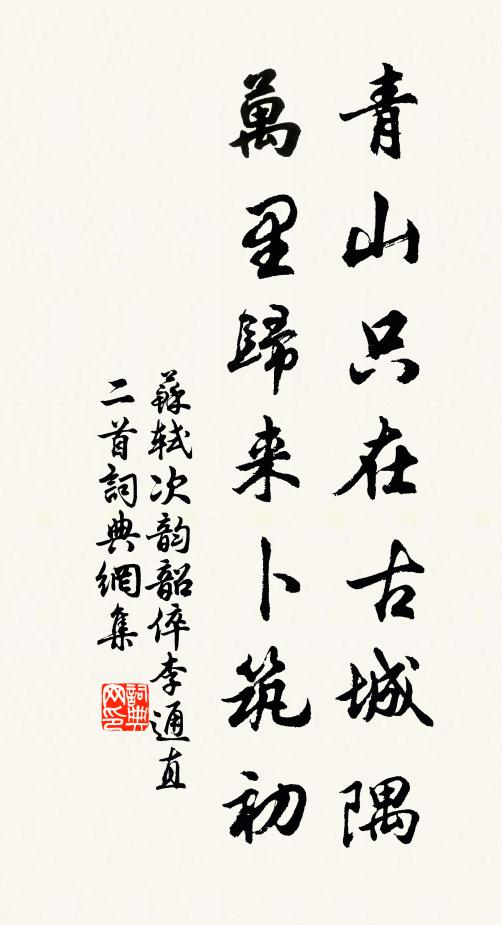 青山只在古城隅
萬里歸来卜筑初
蘇軾次韵韶倅李通直
二首詞典網集
詞典网印